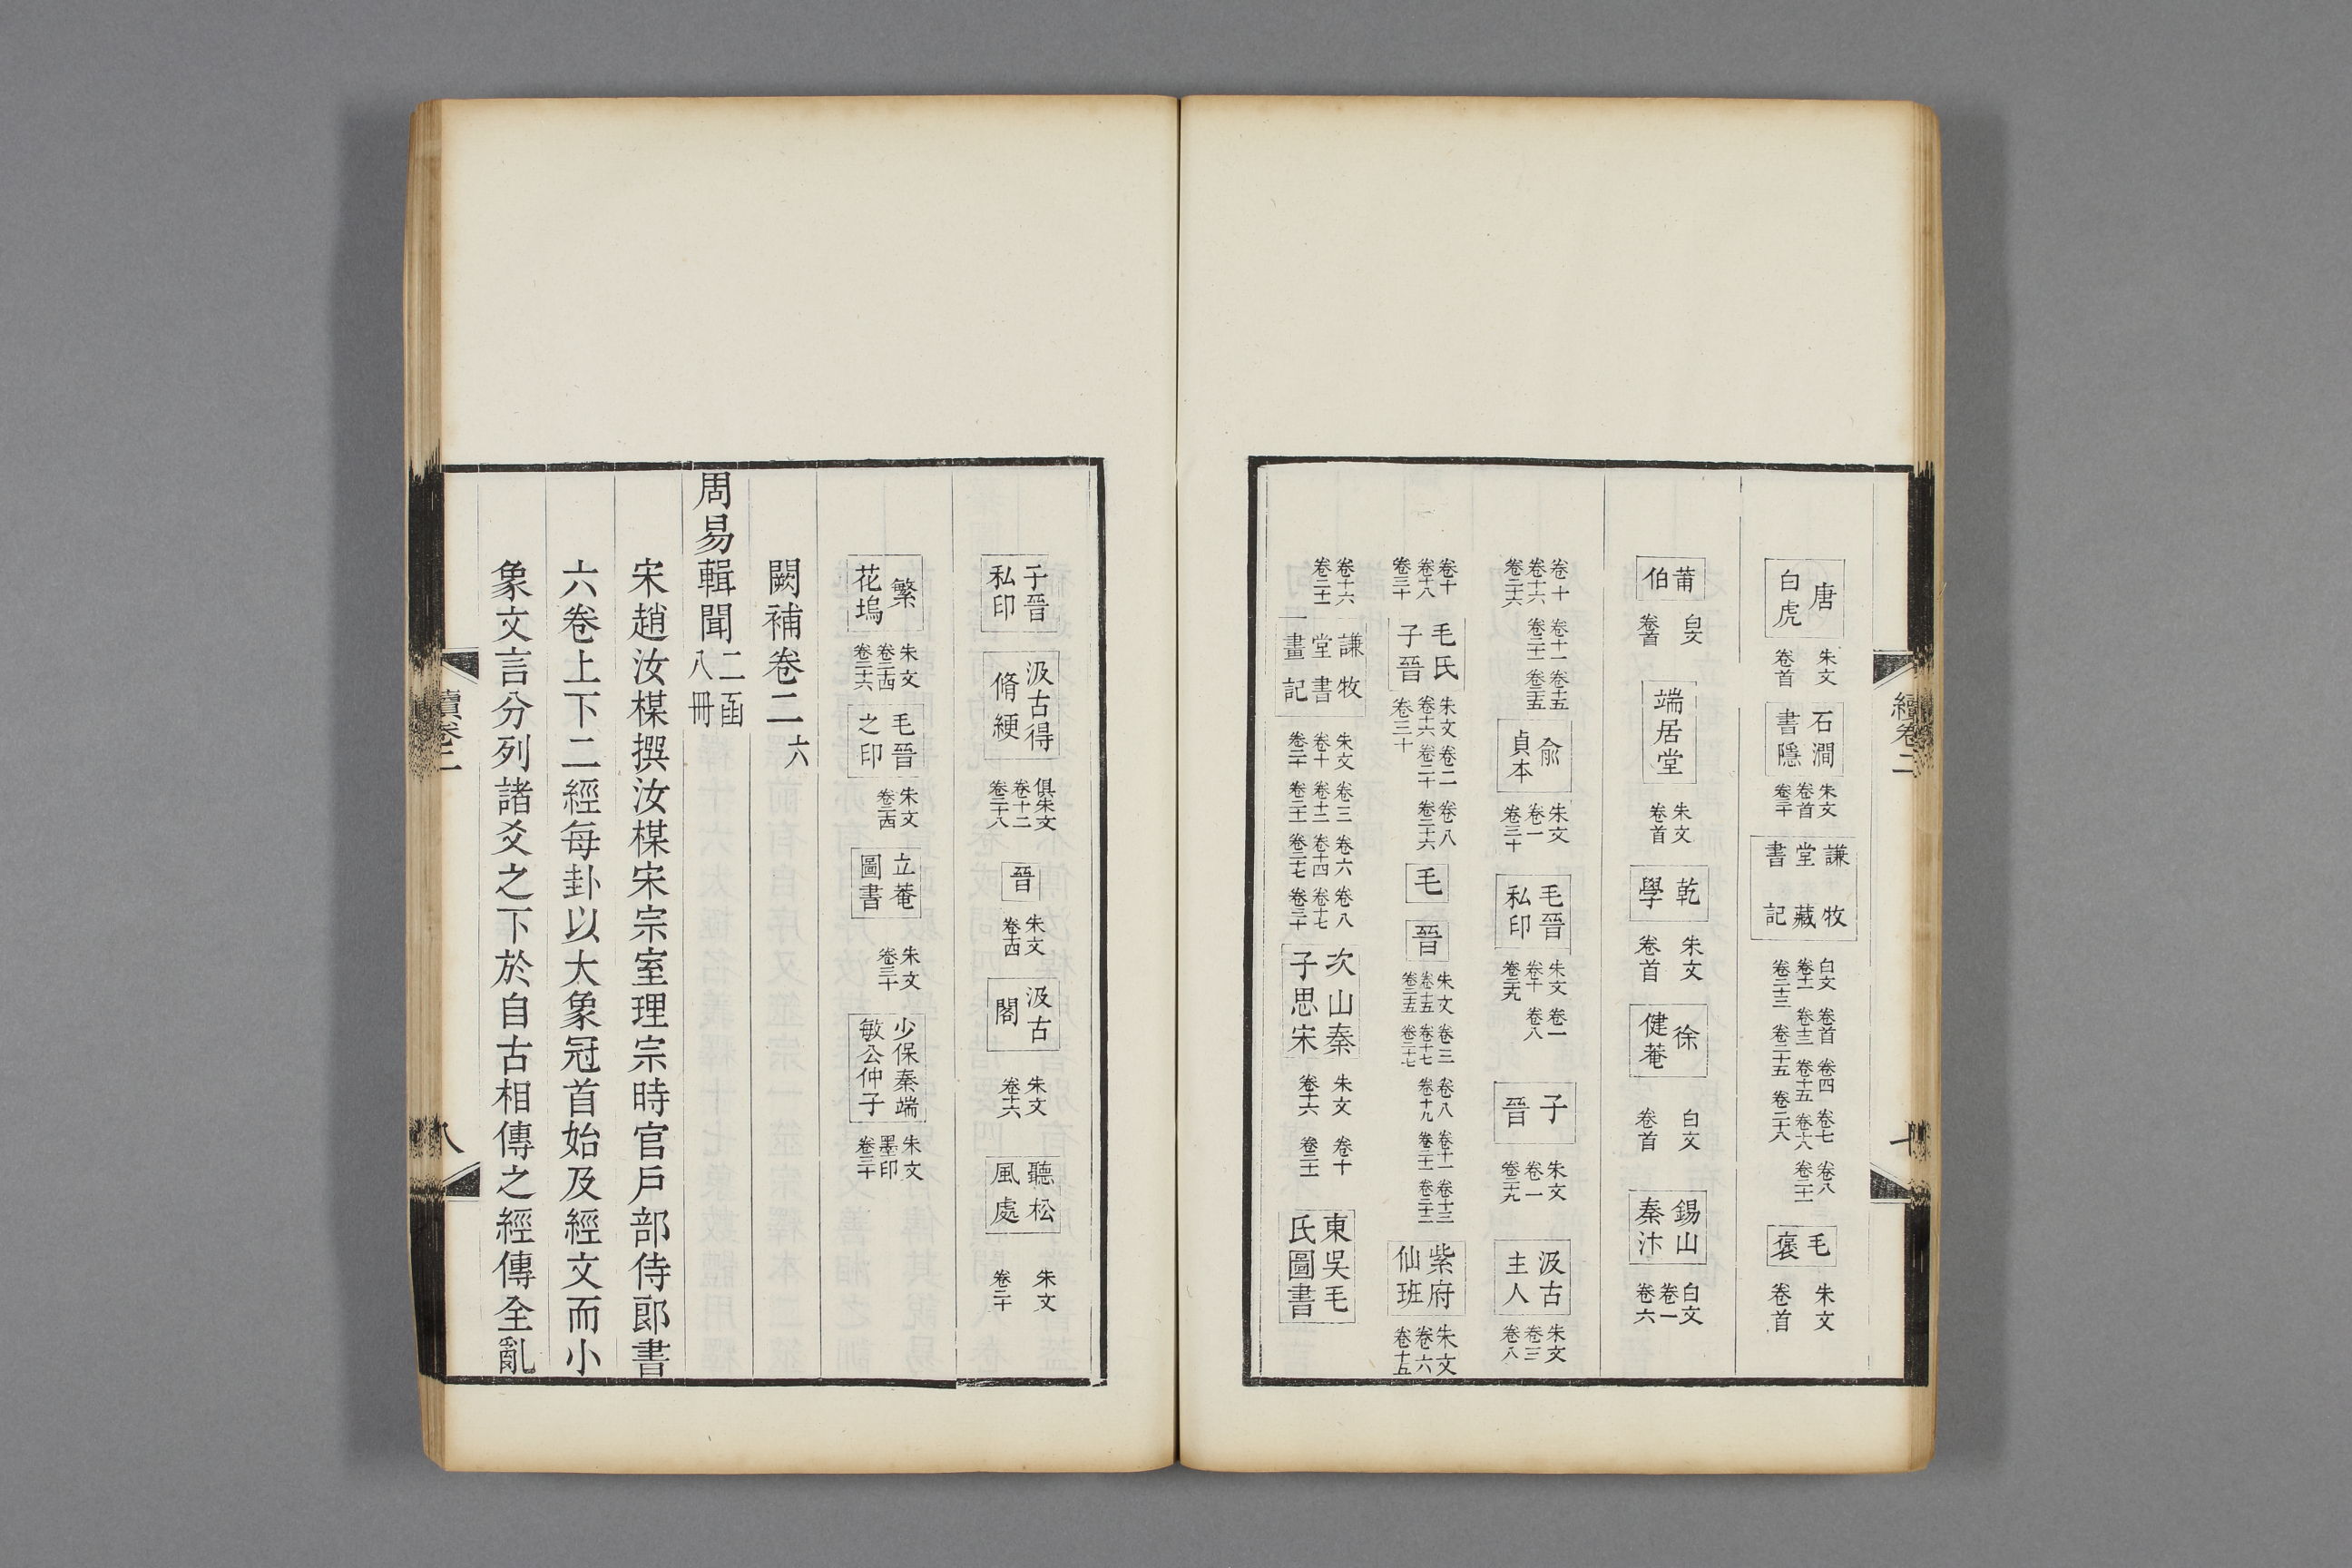 續卷二
唐白虎 朱文 卷首 石澗書隱 朱文 卷首 卷三十 謙牧堂書藏記 白文 卷首 卷四 卷七 卷八 卷十一 卷十三 卷十五 卷十六 卷二十一 卷二十三 卷二十五 卷二十八 毛褒 朱文 卷首
莆伯 白文 卷首 端居堂 朱文 卷首 乾學 朱文 卷首 徐健菴 白文 卷首 錫山秦汴 白文 卷一 卷六
卷十 卷十一 卷十五 卷十六 卷二十一 卷二十五 卷二十六 俞貞本 朱文 卷一 卷三十 毛晉私印 朱文 卷一 卷十 卷八 卷二十九 子晉 朱文 卷一 卷二十九 汲古主人 朱文 卷三 卷八
卷十 卷十八 卷三十 毛氏子晉 朱文 卷二 卷八 卷十六 卷二十 卷二十六 卷三十 毛 晉 朱文 卷三 卷八 卷十一 卷十三 卷十五 卷十七 卷十九 卷二十一 卷二十二 卷二十五 卷二十七 紫府仙班 朱文 卷六 卷十五
卷十六 卷二十一 謙牧堂書畫記 朱文 卷三 卷六 卷八 卷十 卷十二 卷十四 卷十七 卷二十 卷二十一 卷二十七 卷三十 次山秦子思宋 朱文 卷十 卷十六 卷二十一 東吳毛氏圖書
子晉私印 汲古得脩綆 俱朱文 卷十二 卷二十八 晉 朱文 卷十四 汲古閣 朱文 卷十六 聽松風處 朱文 卷二十
繁花塢 朱文 卷二十四 卷二十六 毛晉之印 朱文 卷二十四 立菴圖書 朱文 卷三十 少保秦端敏公仲子 朱文 墨印 卷三十
闕補卷二 六
周易輯聞 二函 八冊
宋趙汝楳撰汝楳宋宗室理宗時官戶部侍郎書
六卷上下二經每卦以大象冠首始及經文而小
象文言分列諸爻之下於自古相傳之經傳全亂
續卷二
八